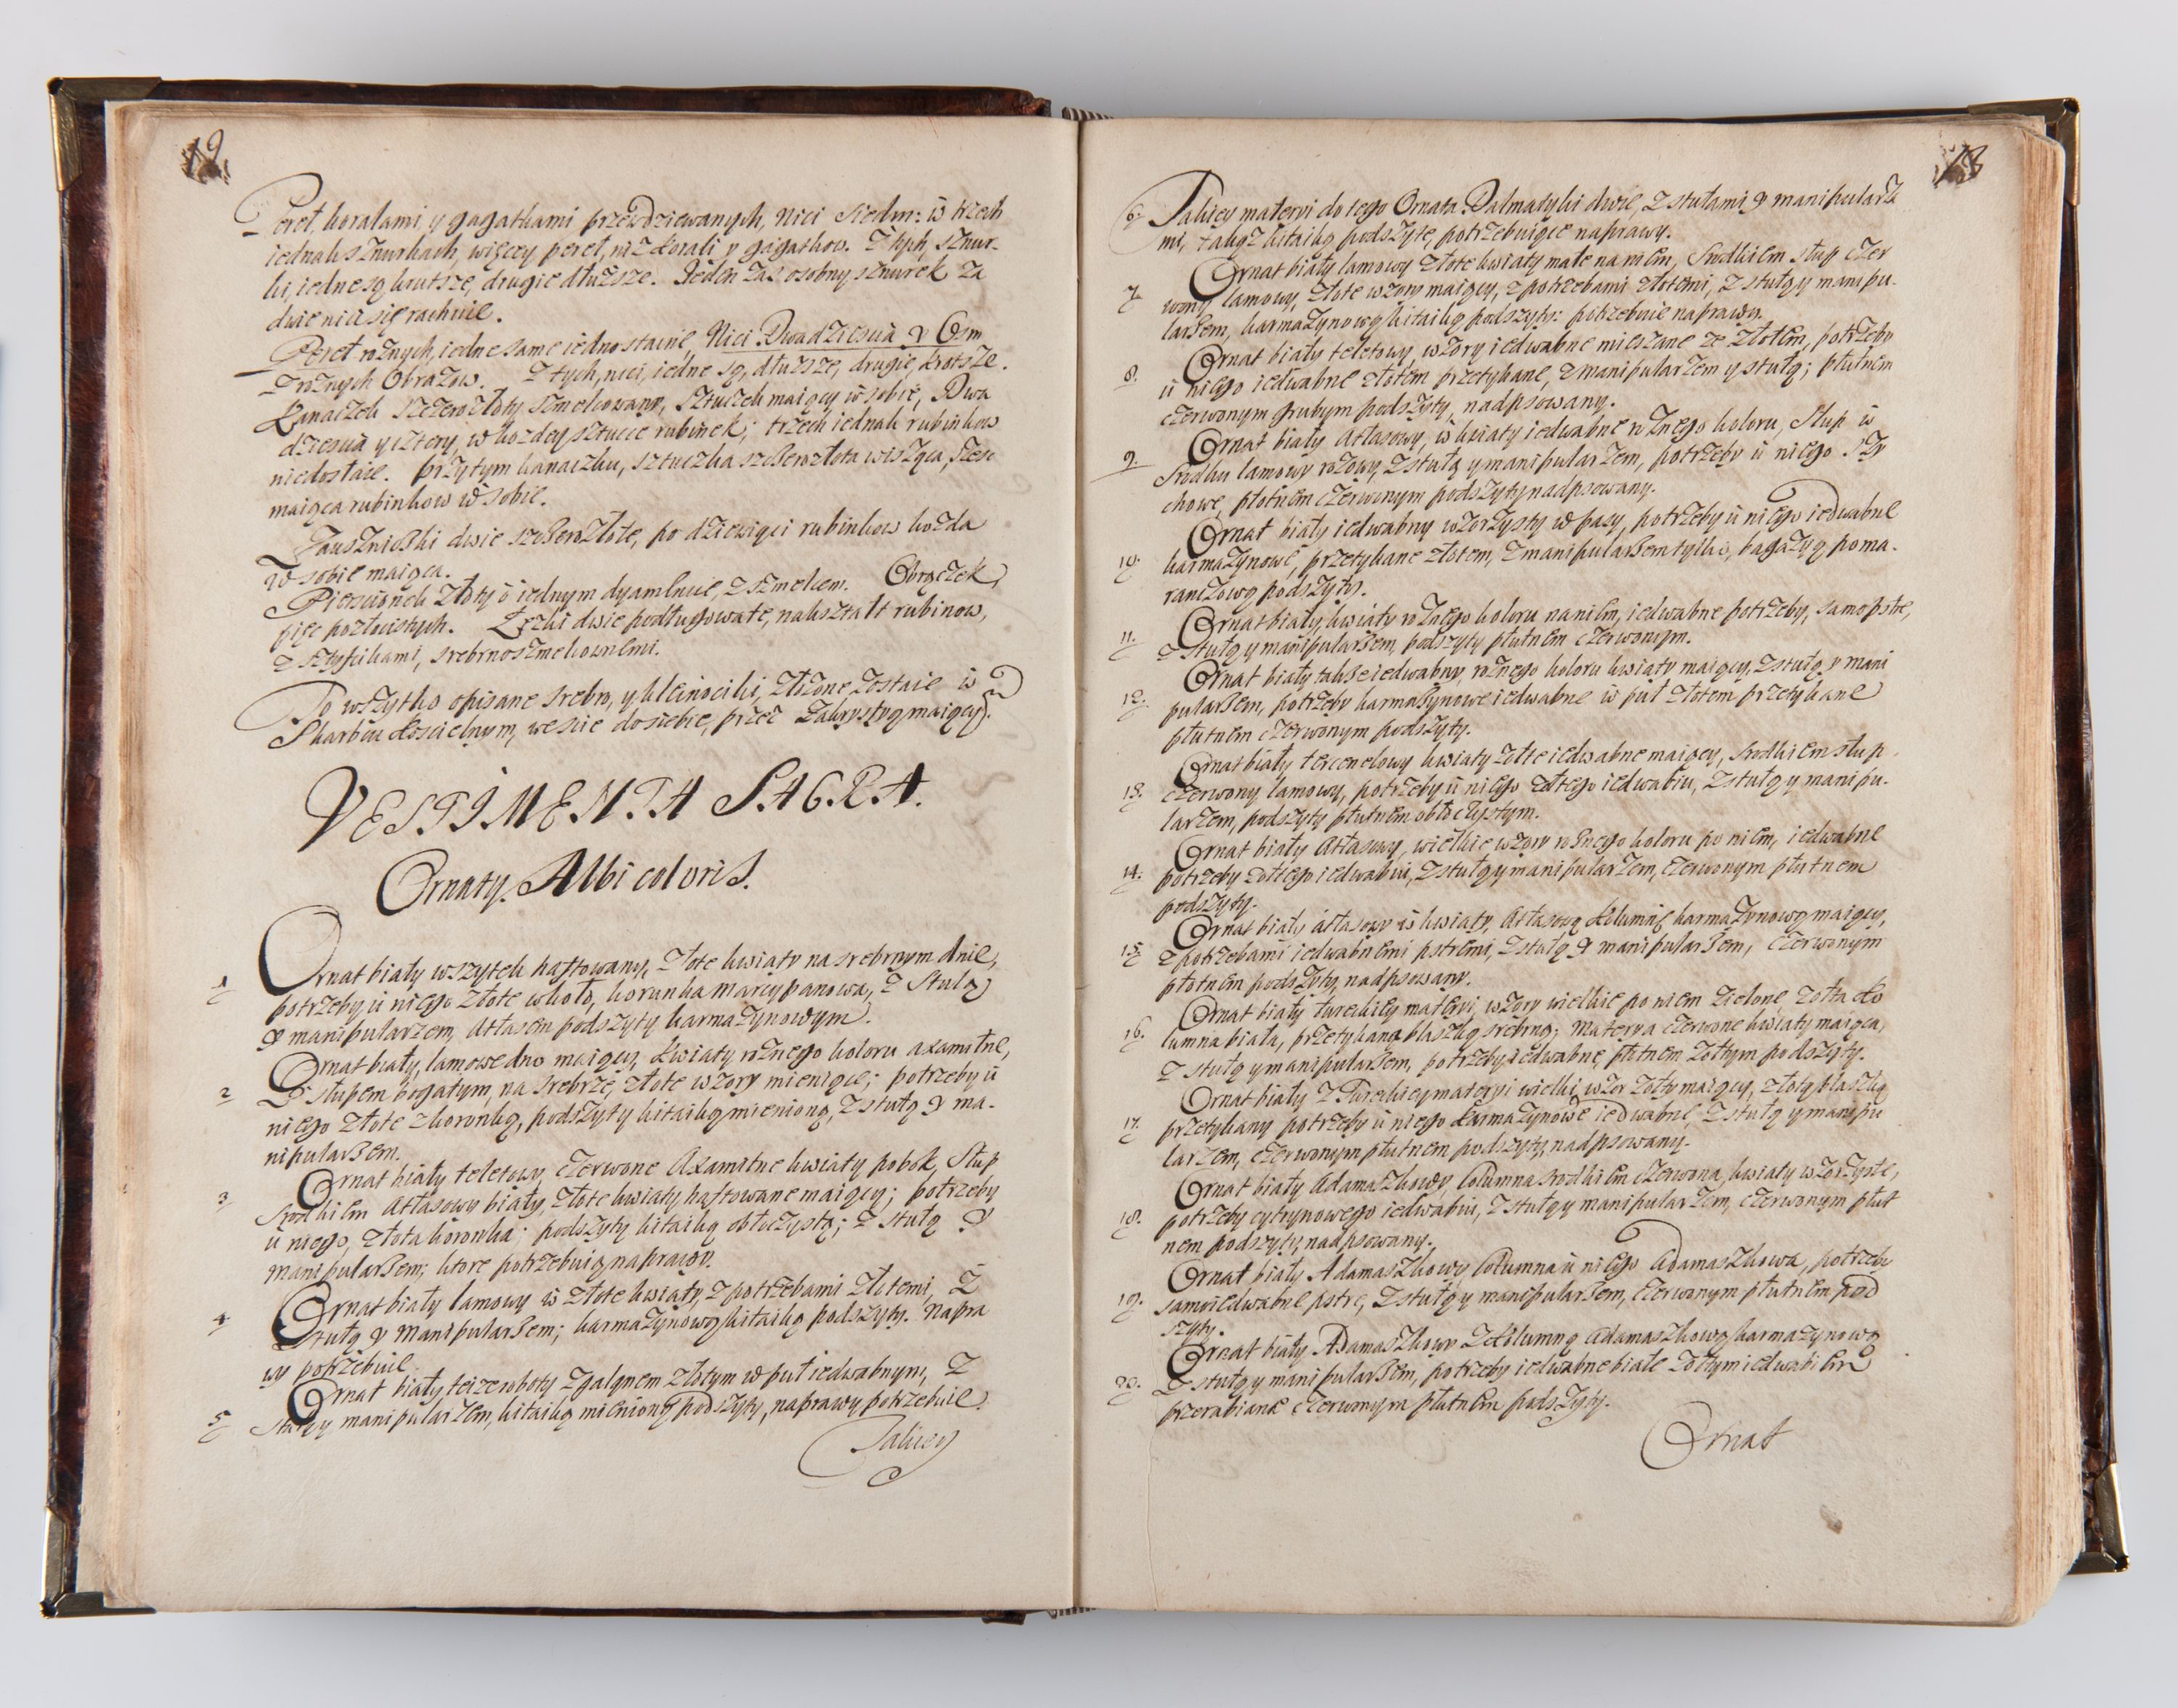 12
Pereł, koralami, y gagatkami przewdziewanych, nici siedm: w trzech
iednak sznurkach, więcey pereł, niż korali y gagatkow. Z tych, sznur-
ki, iedne są krutsze, drugie dłuższe. Ieden zas osobny sznurek za
dwie nici się rachuie.
Pereł rożnych, iedne same iednostaine, Nici Dwadziescia y Osm
z rożnych Obrazow. Z tych, nici, iedne są, dłuższe, drugie, krotsze.
Kanaczek szczerozłoty szmelcowany, sztuczek maiący w sobie, Dwa
dziescia y cztery, w kożdey sztucce rubinek; trzech iednak rubinkow
niedostaie. Przytym kanaczku, sztuczka szczerozłota wisząca, szesc
maiąca rubinkow w sobie.
Zauszniczki dwie szczerozłote, po dziewiąci rubinkow kożda
w sobie maiąca.
Pierscionek złoty o iednym dyamencie, z szmelcem. Obrączek,
pięc pozłocistych. Łęzki dwie podługowate, nakształt rubinow,
z sztyfcikami, srebrnoszmelcownemi.
To wszytko opisane srebro, y kleinociki, złożone zostaie w
Skarbcu koscielnym, wescie do siebie, przez Zakrystyą maiący.
VESTIMENTA SACRA.
Ornaty. Albi coloris.
1 Ornat biały wszytek haftowany, złote kwiaty na srebrnym dnie,
potrzeby u niego złote wkoło, korunka marcypanowa, z Stulą
y manipularzem, Atłasem podszyty karmazynowym.
2 Ornat biały, lamowe dno maiący, kwiaty rożnego koloru axamitne,
z słupem bogatym, na srebrze, złote wzory mieniące; potrzeby u
niego złote z koronką, podszyty kitaiką mienioną, z stułą y ma-
nipularzem.
3 Ornat biały teletowy, czerwone Axamitne kwiaty po bok, Słup
srzodkiem Atłasowy biały, złote kwiaty haftowane maiący; potrzeby
u niego, złota koronka; podszyty kitaiką obłoczystą; z stułą y
manipularzem; ktore potrzebuią naprawy.
4 Ornat biały lamowy w złote kwiaty, z potrzebami złotemi, z
stułą y manipularzem; karmazynową kitaiką podszyty. Napra
wy potrzebuie.
5 Ornat biały teizeroboty z galąnem złotym w puł iedwabnym, z
stułą y manipularzem, kitaiką mienioną podszyty, naprawy potrzebuie.
Takiey
13
6. Takiey materyi do tego Ornata Dalmatyki dwie, z stułami y manipularza
mi, także kitaiką podszyte, potrzebuiące naprawy.
7. Ornat biały lamowy złote kwiaty małe na niem, Srodkiem słup czer
wony lamowy, złote wzory maiący, z potrzebami złotemi, z stułą y manipu-
larzem, karmazynową kitaiką podszyty: potrzebuie naprawy.
8. Ornat biały teletowy, wzory iedwabne mieszane ze złotem, potrzeby
u niego iedwabne złotem przetykane, z manipularzem y stułą; płutnem
czerwonym grubym podszyty, nadpsowany.
9. Ornat biały Atłasowy, w kwiaty iedwabne rożnego koloru, Słup w
srzodku lamowy rożowy, z stułą y manipularzem, potrzeby u niego szy
chowe, płotnem czerwonym podszyty, nadpsowany.
10. Ornat biały iedwabny wzorzysty w pasy, potrzeby u niego iedwabne
karmazynowe, przetykane złotem, z manipularzem tylko, bagazyą poma-
ranczową podszyty.
11. Ornat biały, kwiaty rożnego koloru na niem, iedwabne potrzeby, samopstre,
z stułą y manipularzem, podszyty płutnem czerwonym.
12. Ornat biały także iedwabny, rożnego koloru kwiaty maiący, z stułą y mani
pularzem, potrzeby karmazynowe iedwabne w puł złotem przetykane
płutnem czerwonym podszyty.
13. Ornat biały tercenelowy kwiaty żołte iedwabne maiący, srodkiem słup
czerwony lamowy, potrzeby u niego żołtego iedwabiu, z stułą y manipu-
larzem, podszyty płutnem obłoczystym.
14. Ornat biały Atłasowy, wielkie wzory rożnego koloru po niem, iedwabne
potrzeby żołtego iedwabiu, z stułą y manipularzem, czerwonym płutnem
podszyty.
15. Ornat biały atłasowy w kwiaty, Atłasową kolumnę karmazynową maiący,
z potrzebami iedwabnemi pstremi, z stułą y manipularzem, czerwonym
płotnem podszyty, nadpsowany.
16. Ornat biały tureckiey materyi, wzory wielkie po niem zielone, żołta ko
lumna biała, przetykana blaszką srebrną; materya czerwone kwiaty maiąca,
z stułą y manipularzem, potrzeby iedwabne, płutnem żołtym podszyty.
17. Ornat biały z Tureckiey materyi wielki wzor żołty maiący, złotą blaszką
przetykany potrzeby u niego karmazynowe iedwabne, z stułą y manipu
larzem, czerwonym płutnem podszyty, nadpsowany.
18. Ornat biały Adamaszkowy, kolumna srodkiem czerwona, kwiaty wzorzyste,
potrzeby cytrynowego iedwabiu, z stułą y manipularzem, czerwonym płut
nem podszyty, nadpsowany.
19. Ornat biały Adamaszkowy kolumna u niego Adamaszkowa, potrzeby
samoiedwabne pstre, z stułą y manipularzem, czerwonym płutnem pod
szyty.
20. Ornat biały Adamaszkowy z kolumną Adamaszkową karmazynową
z stułą y manipularzem, potrzeby iedwabne białe żołtym iedwabiem
przerabiane czerwonym płutnem podszyty.
Ornat